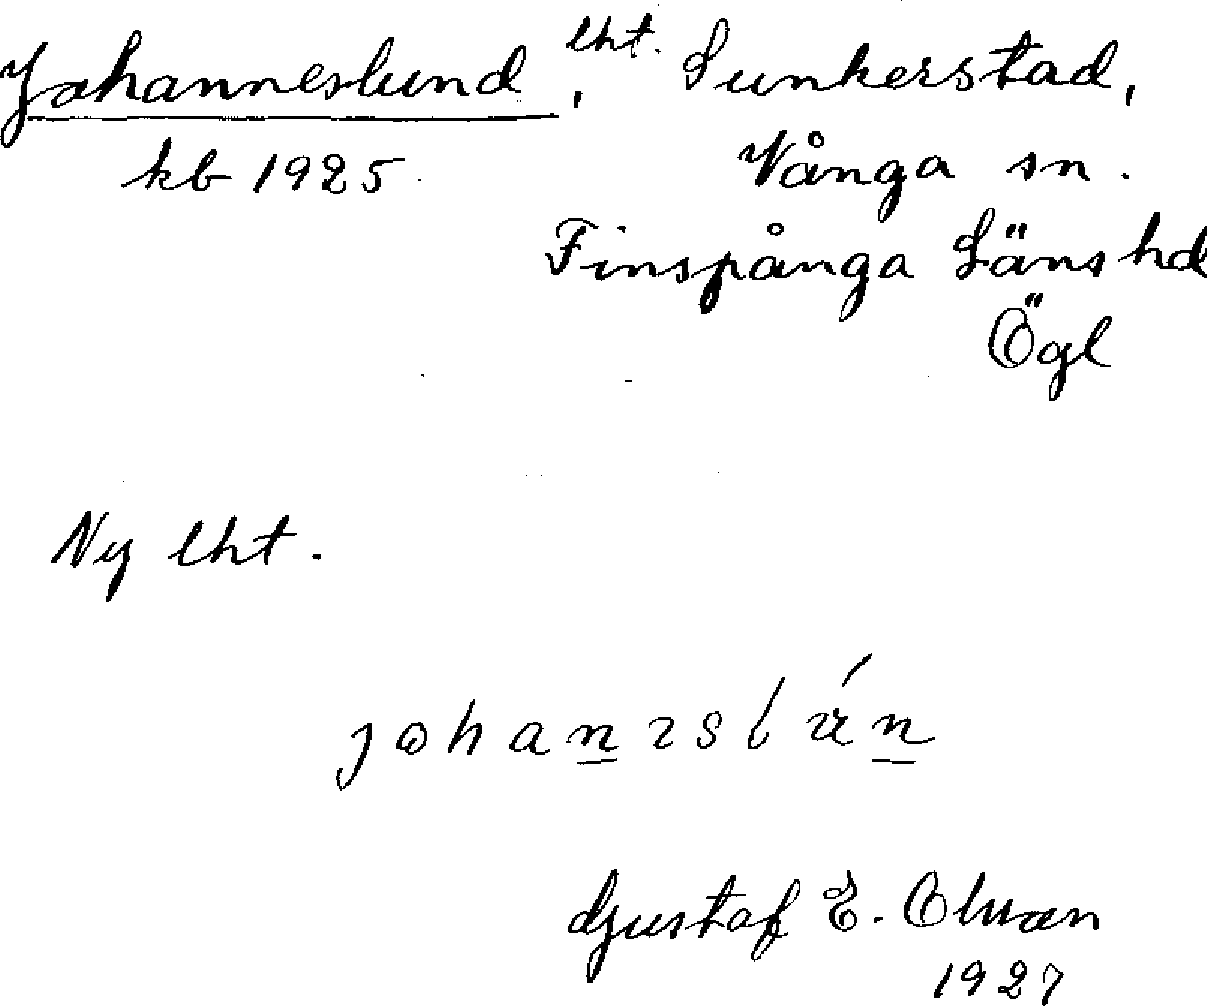 Johanneslund, lht. Sunkerstad,
kb 1925. Vånga sn.
Finspånga Läns hd
Ögl
Ny lht.
johanɩslún
Gustaf E. Olsson
1927